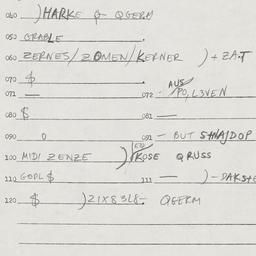 040 ) HARKE & QGERM
050 GRABLE
060 ZERNES/ZOMEN/KERNER ) + ZA.T
070 $
AUS
071 — 072 - PO, L3VEN
080 $ 081 —
090 0 091 - BUT
100 MIDI ZENZE ) ROSE QRUSS
110 GODL $ 111 — ) - DAKSTE
120 $ ) 21X83L8- QGERM